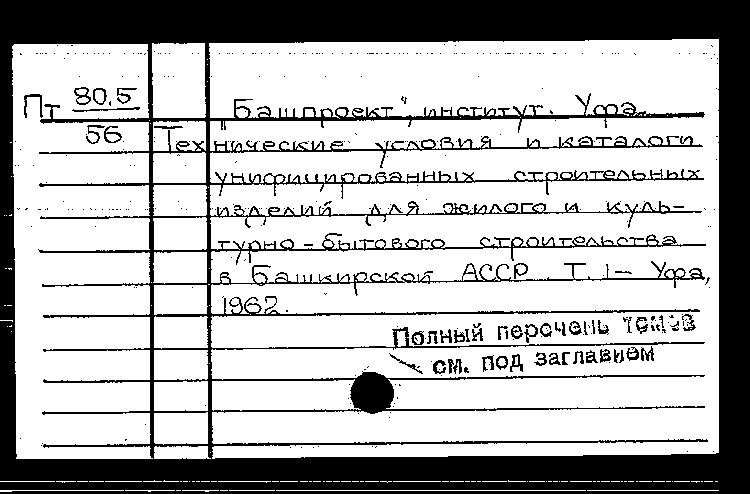 Пт 80.5
56
"Башпроект", институт. Уфа.
Технические условия и каталоги
унифицированных строительных
изделий для жилого и куль-
турно-бытового строительства
в Башкирской АССР. Т. 1- Уфа,
1962.
Полный перечень томов
см. под заглавием